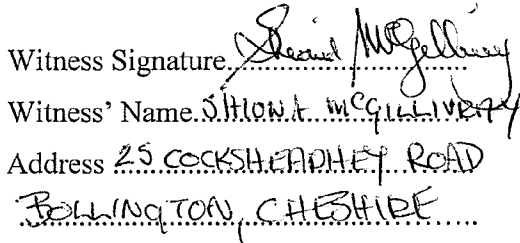 Witness Signature Shiona McGillivray
Witness' Name SHIONA McGILLIVRAY
Address 25 COCKSHEADHEY ROAD
BOLLINGTON, CHESHIRE